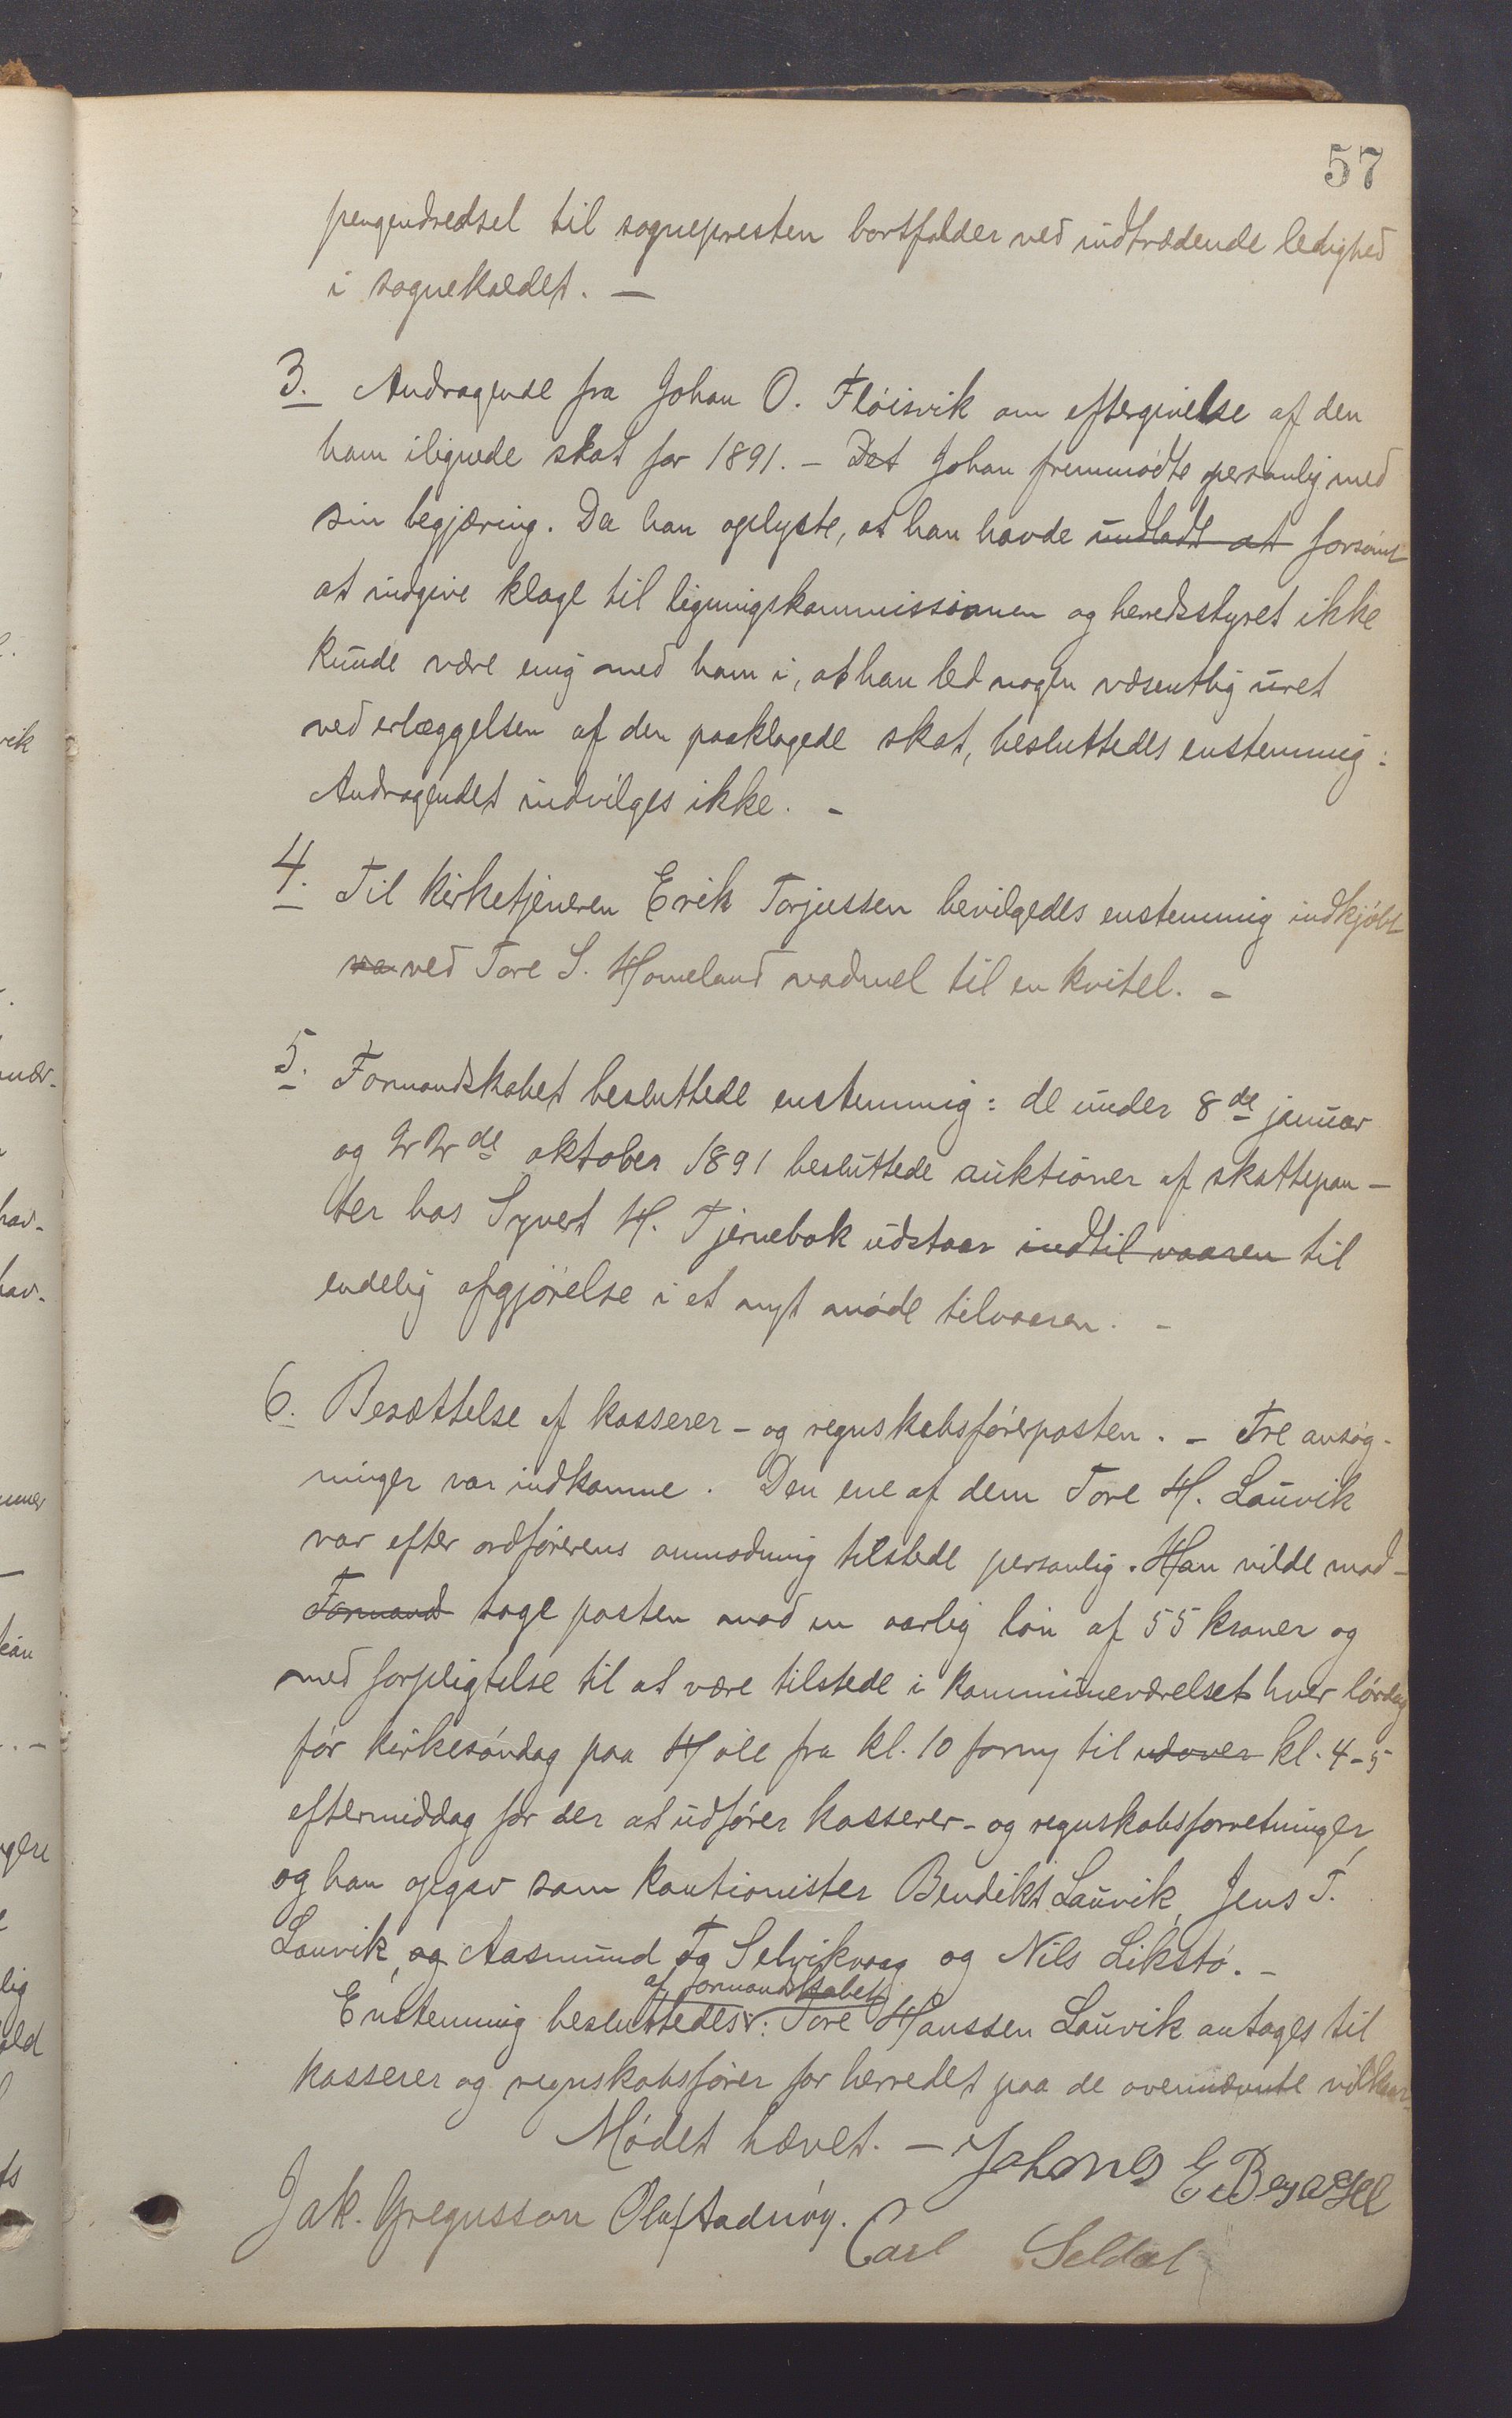 57
pengeudredsel til sognepresten bortfalder ved indtrædende ledighed
i sognekaldet. —
3. Andragende fra Johan O. Fløisvik om eftergivelse af den
ham ilignede skat for 1891. – Det Johan fremmødte personlig med
sin begjæring. Da han oplyste, at han havde undladt at forsømt
at indgive klage til ligningskommissionen og herredsstyret ikke
kunde være enig med ham i, at han led nogen væsentlig uret
ved erlæggelsen af den paaklagede skat, besluttedes enstemmig:
Andragendet indvilges ikke. –
4. Til kirketjeneren Erik Torjussen bevilgedes enstemmig indkjøbt
va ved Tore S. Homeland vadmel til en kvitel. –
5. Formandskabet besluttede enstemmig: de under 8de januar
og 22de oktober 1891 besluttede auktioner af skattepan-
ter hos Syvert H. Tjernebak udstaar indtil vaaren til
endelig afgjørelse i et nyt møde tilvaaren. –
6. Besættelse af kasserer- og regnskabsførerposten. – Tre ansøg-
ninger var indkomne. Den ene af dem Tore H. Lauvik
var efter ordførerens anmodning tilstede personlig. Han vilde mod-
Formand tage posten mod en aarlig løn af 55 kroner og
med forpligtelse til at være tilstede i kommuneværelset hver lørdag
før kirkesøndag paa Høle fra kl. 10 formg til udover kl. 4-5
eftermiddag for der at udfører kasserer- og regnskabsforretninger,
og han opgav som kautionister Bendikt Lauvik, Jens T.
Lauvik, og Aasmund Tg Selvikvaag og Nils Likstø. –
af formandskabet
Enstemmig besluttedes: Tore Hanssen Lauvik antages til
kasserer og regnskabsfører for herredet paa de ovennævnte vilkaar.
Mødet hævet. – Johanes E Bersagel
Jak. Gregusson Oluf Aadnøy.
Carl Seldal